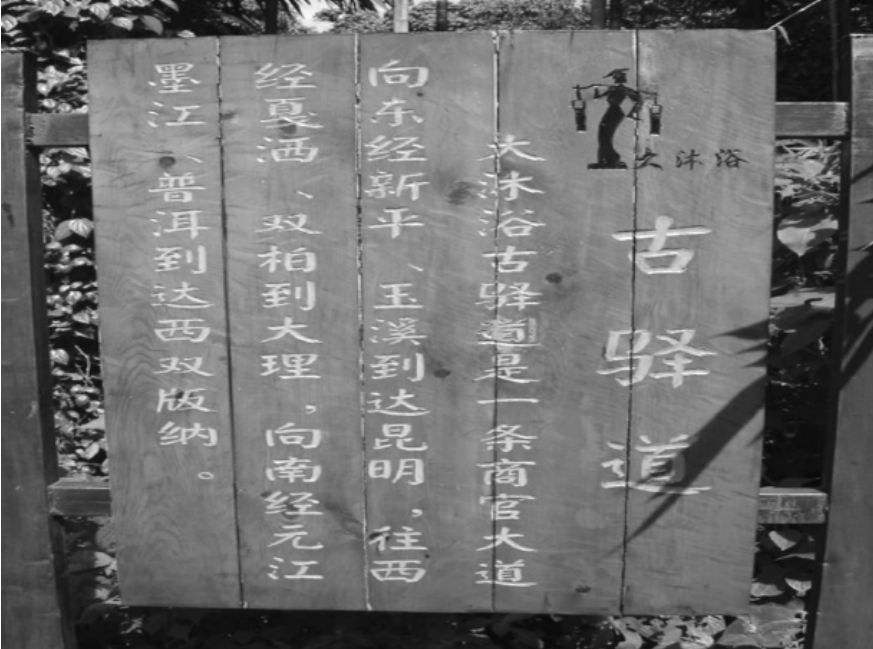 大沐浴
古驿道
大沐浴古驿道是一条商官大道
向东经新平、玉溪到达昆明，往西
经戛洒、双柏到大理，向南经元江
墨江、普洱到达西双版纳。